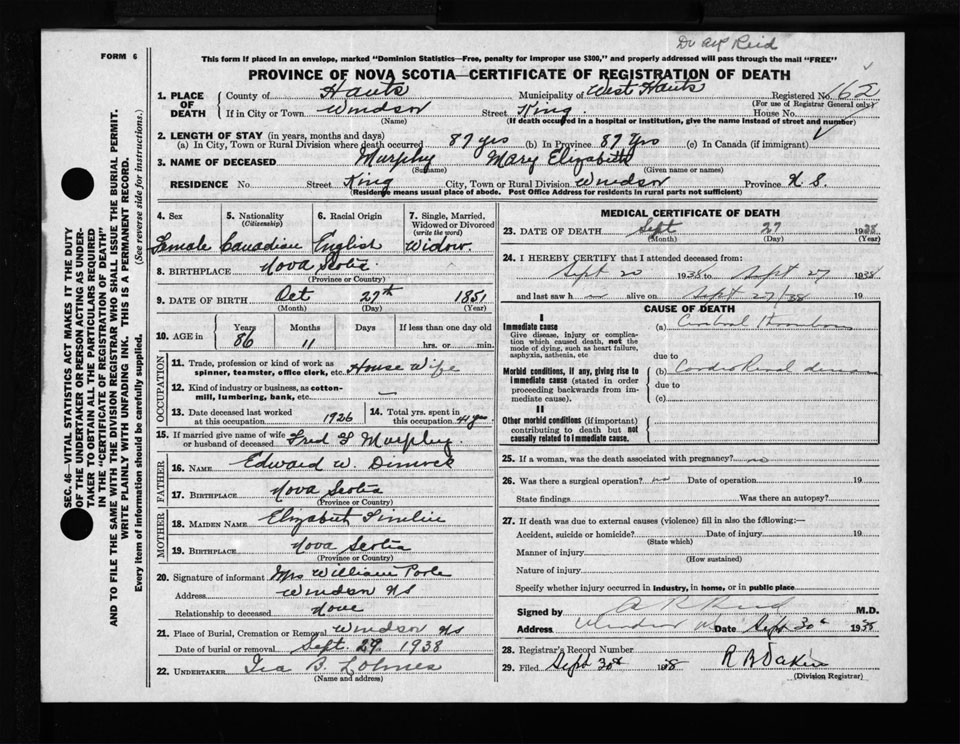 Dr A R Reid
FORM 6
This form if placed in an envelope, marked "Dominion Statistics—Free, penalty for improper use $300," and properly addressed will pass through the mail "FREE"
PROVINCE OF NOVA SCOTIA—CERTIFICATE OF REGISTRATION OF DEATH
SEC. 46—VITAL STATISTICS ACT MAKES IT THE DUTY
OF THE UNDERTAKER OR PERSON ACTING AS UNDER-
TAKER TO OBTAIN ALL THE PARTICULARS REQUIRED
IN THE "CERTIFICATE OF REGISTRATION OF DEATH"
AND TO FILE THE SAME WITH THE DIVISION REGISTRAR WHO SHALL ISSUE THE BURIAL PERMIT.
WRITE PLAINLY WITH UNFADING INK. THIS IS A PERMANENT RECORD.
Every item of information should be carefully supplied. (See reverse side for instructions.)
1. PLACE OF DEATH County of Hants Municipality of West Hants Registered No. 162
(For use of Registrar General only)
If in City or Town Windsor Street King House No.
(Name) (If death occurred in a hospital or institution, give the name instead of street and number)
2. LENGTH OF STAY (in years, months and days)
(a) In City, Town or Rural Division where death occurred 87 yrs (b) In Province 87 Yrs (c) In Canada (if immigrant)
3. NAME OF DECEASED Murphy Mary Elizabeth
(Surname) (Given name or names)
RESIDENCE No Street King City, Town or Rural Division Windsor Province N. S.
(Residence means usual place of abode. Post Office Address for residents in rural parts not sufficient)
4. Sex 5. Nationality (Citizenship) 6. Racial Origin 7. Single, Married, Widowed or Divorced (write the word)
Female Canadian English Widow.
8. BIRTHPLACE Nova Scotia
(Province or Country)
9. DATE OF BIRTH Oct 27th 1851
(Month) (Day) (Year)
10. AGE in Years Months Days If less than one day old
86 11 hrs. or min.
OCCUPATION
11. Trade, profession or kind of work as
spinner, teamster, office clerk, etc. House Wife
12. Kind of industry or business, as cotton-
mill, lumbering, bank, etc. —
13. Date deceased last worked at this occupation 1926 14. Total yrs. spent in this occupation
15. If married give name of wife or husband of deceased Fred Murphy
FATHER
16. NAME Edward W. Dimock
17. BIRTHPLACE Nova Scotia
(Province or Country)
MOTHER
18. MAIDEN NAME Elizabeth
19. BIRTHPLACE Nova Scotia
(Province or Country)
20. Signature of informant Mrs William Poole
Address Windsor NS
Relationship to deceased None
21. Place of Burial, Cremation or Removal Windsor NS
Date of burial or removal Sept. 29, 1938
22. UNDERTAKER Ira B. Lohnes
(Name and address)
MEDICAL CERTIFICATE OF DEATH
23. DATE OF DEATH Sept 27 1938
(Month) (Day) (Year)
24. I HEREBY CERTIFY that I attended deceased from:
Sept 20 1938 to Sept 27 1938
and last saw h alive on Sept 27/38 19
CAUSE OF DEATH
I
Immediate cause (a) Cerebral Thrombosis
Give disease, injury or complica-
tion which caused death, not the
mode of dying, such as heart failure,
asphyxia, asthenia, etc due to
Morbid conditions, if any, giving rise to (b) Cardio Renal disease
immediate cause (stated in order due to
proceeding backwards from im-
mediate cause). (c)
II
Other morbid conditions (if important)
contributing to death but not
causally related to immediate cause.
25. If a woman, was the death associated with pregnancy? no
26. Was there a surgical operation? no Date of operation 19
State findings Was there an autopsy?
27. If death was due to external causes (violence) fill in also the following:—
Accident, suicide or homicide? Date of injury 19
(State which)
Manner of injury
(How sustained)
Nature of injury
Specify whether injury occurred in industry, in home, or in public place
Signed by A R Reid M.D.
Address Windsor NS Date Sept 30th 1938
28. Registrar's Record Number
29. Filed Sept 30th 1938 R B Dakin
(Division Registrar)